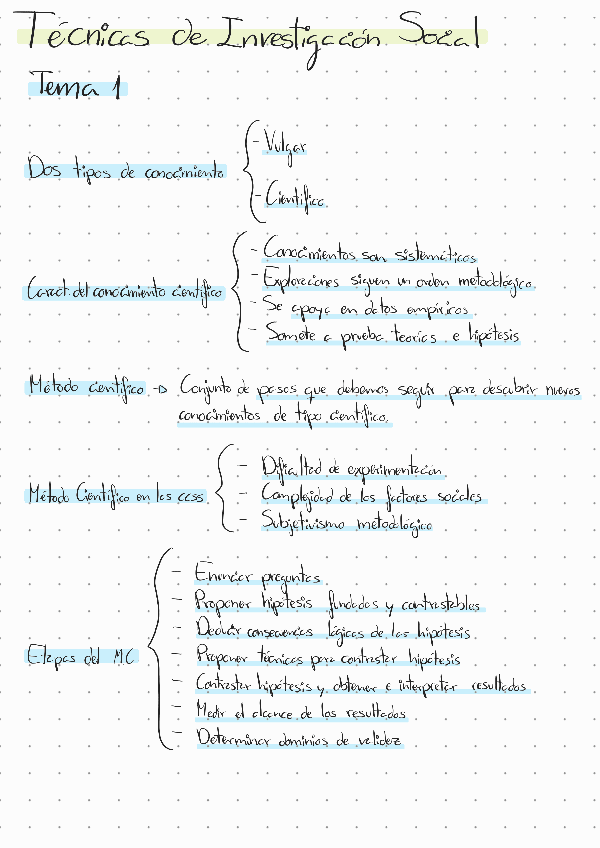 Técnicas de Investigación Social
Tema 1
Dos tipos de conocimiento
- Vulgar
- Científico
Caract. del conocimiento científico
- Conocimientos son sistemáticos
- Exploraciones siguen un orden metodológico
- Se apoya en datos empíricos
- Somete a prueba teorías e hipótesis
Método científico → Conjunto de pasos que debemos seguir para descubrir nuevos
conocimientos de tipo científico.
Método Científico en las ccss
- Dificultad de experimentación
- Complejidad de los factores sociales
- Subjetivismo metodológico
Etapas del MC
- Enunciar preguntas
- Proponer hipótesis fundadas y contrastables
- Deducir consecuencias lógicas de las hipótesis.
- Proponer técnicas para contrastar hipótesis
- Contrastar hipótesis y obtener e interpretar resultados
- Medir el alcance de los resultados
- Determinar dominios de validez